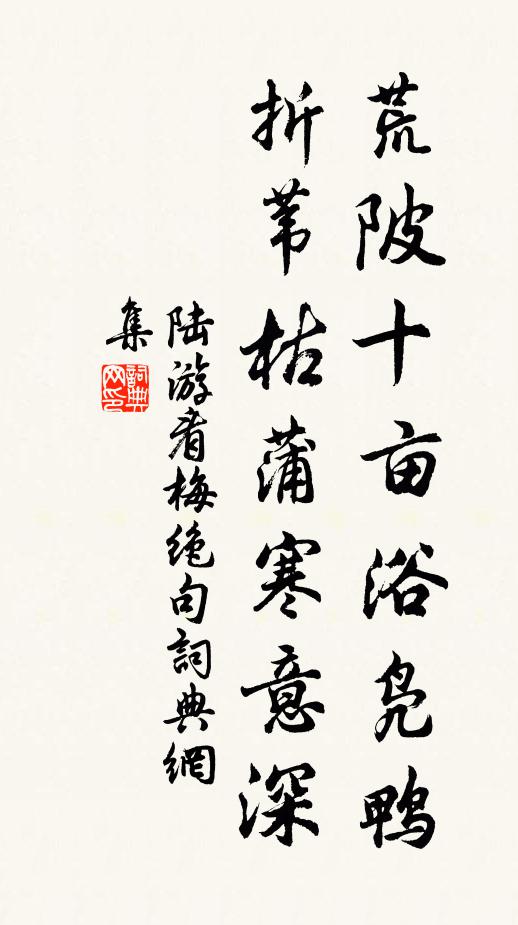 荒陂十亩浴凫鸭
折苇枯蒲寒意深
陆游看梅绝句詞典網
集
詞典网印